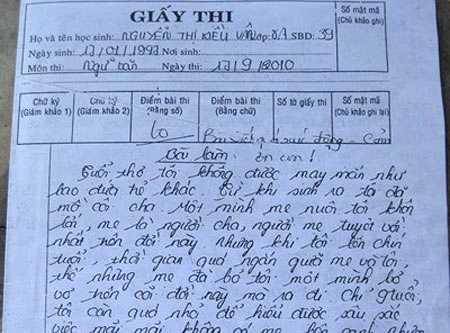 GIẤY THI
Số mật mã
(Chủ khảo ghi)
Họ và tên học sinh: NGUYỄN THỊ KIỀU VÂN Lớp: 8A SBD: 39
Ngày sinh: 17/01/1997 Nơi sinh:
Môn thi: Ngữ văn Ngày thi: 17/9/2010
Chữ ký
(Giám khảo 1)
Chữ ký
(Giám khảo 2)
Điểm bài thi
(Bằng số)
Điểm bài thi
(Bằng chữ)
Số tờ giấy thi
Số mật mã
(Chủ khảo ghi lại)
10
Bài viết xúc động - Cảm
ơn em!
Bài làm:
Tuổi thơ tôi không được may mắn như
bao đứa trẻ khác. Từ khi sinh ra tôi đã
mồ côi cha. Một mình mẹ nuôi tôi khôn
lớn, mẹ là người cha, người mẹ tuyệt vời
nhất trên đời này. Nhưng khi tôi lên chín
tuổi, thời gian quá ngắn ngủi mẹ vợ tôi,
thế nhưng mẹ đã bỏ tôi một mình bơ
vơ trên cõi đời này mà ra đi. Chỉ 9 tuổi,
tôi còn quá nhỏ để hiểu được sâu sắc
việc mãi mãi không có mẹ bên cạnh